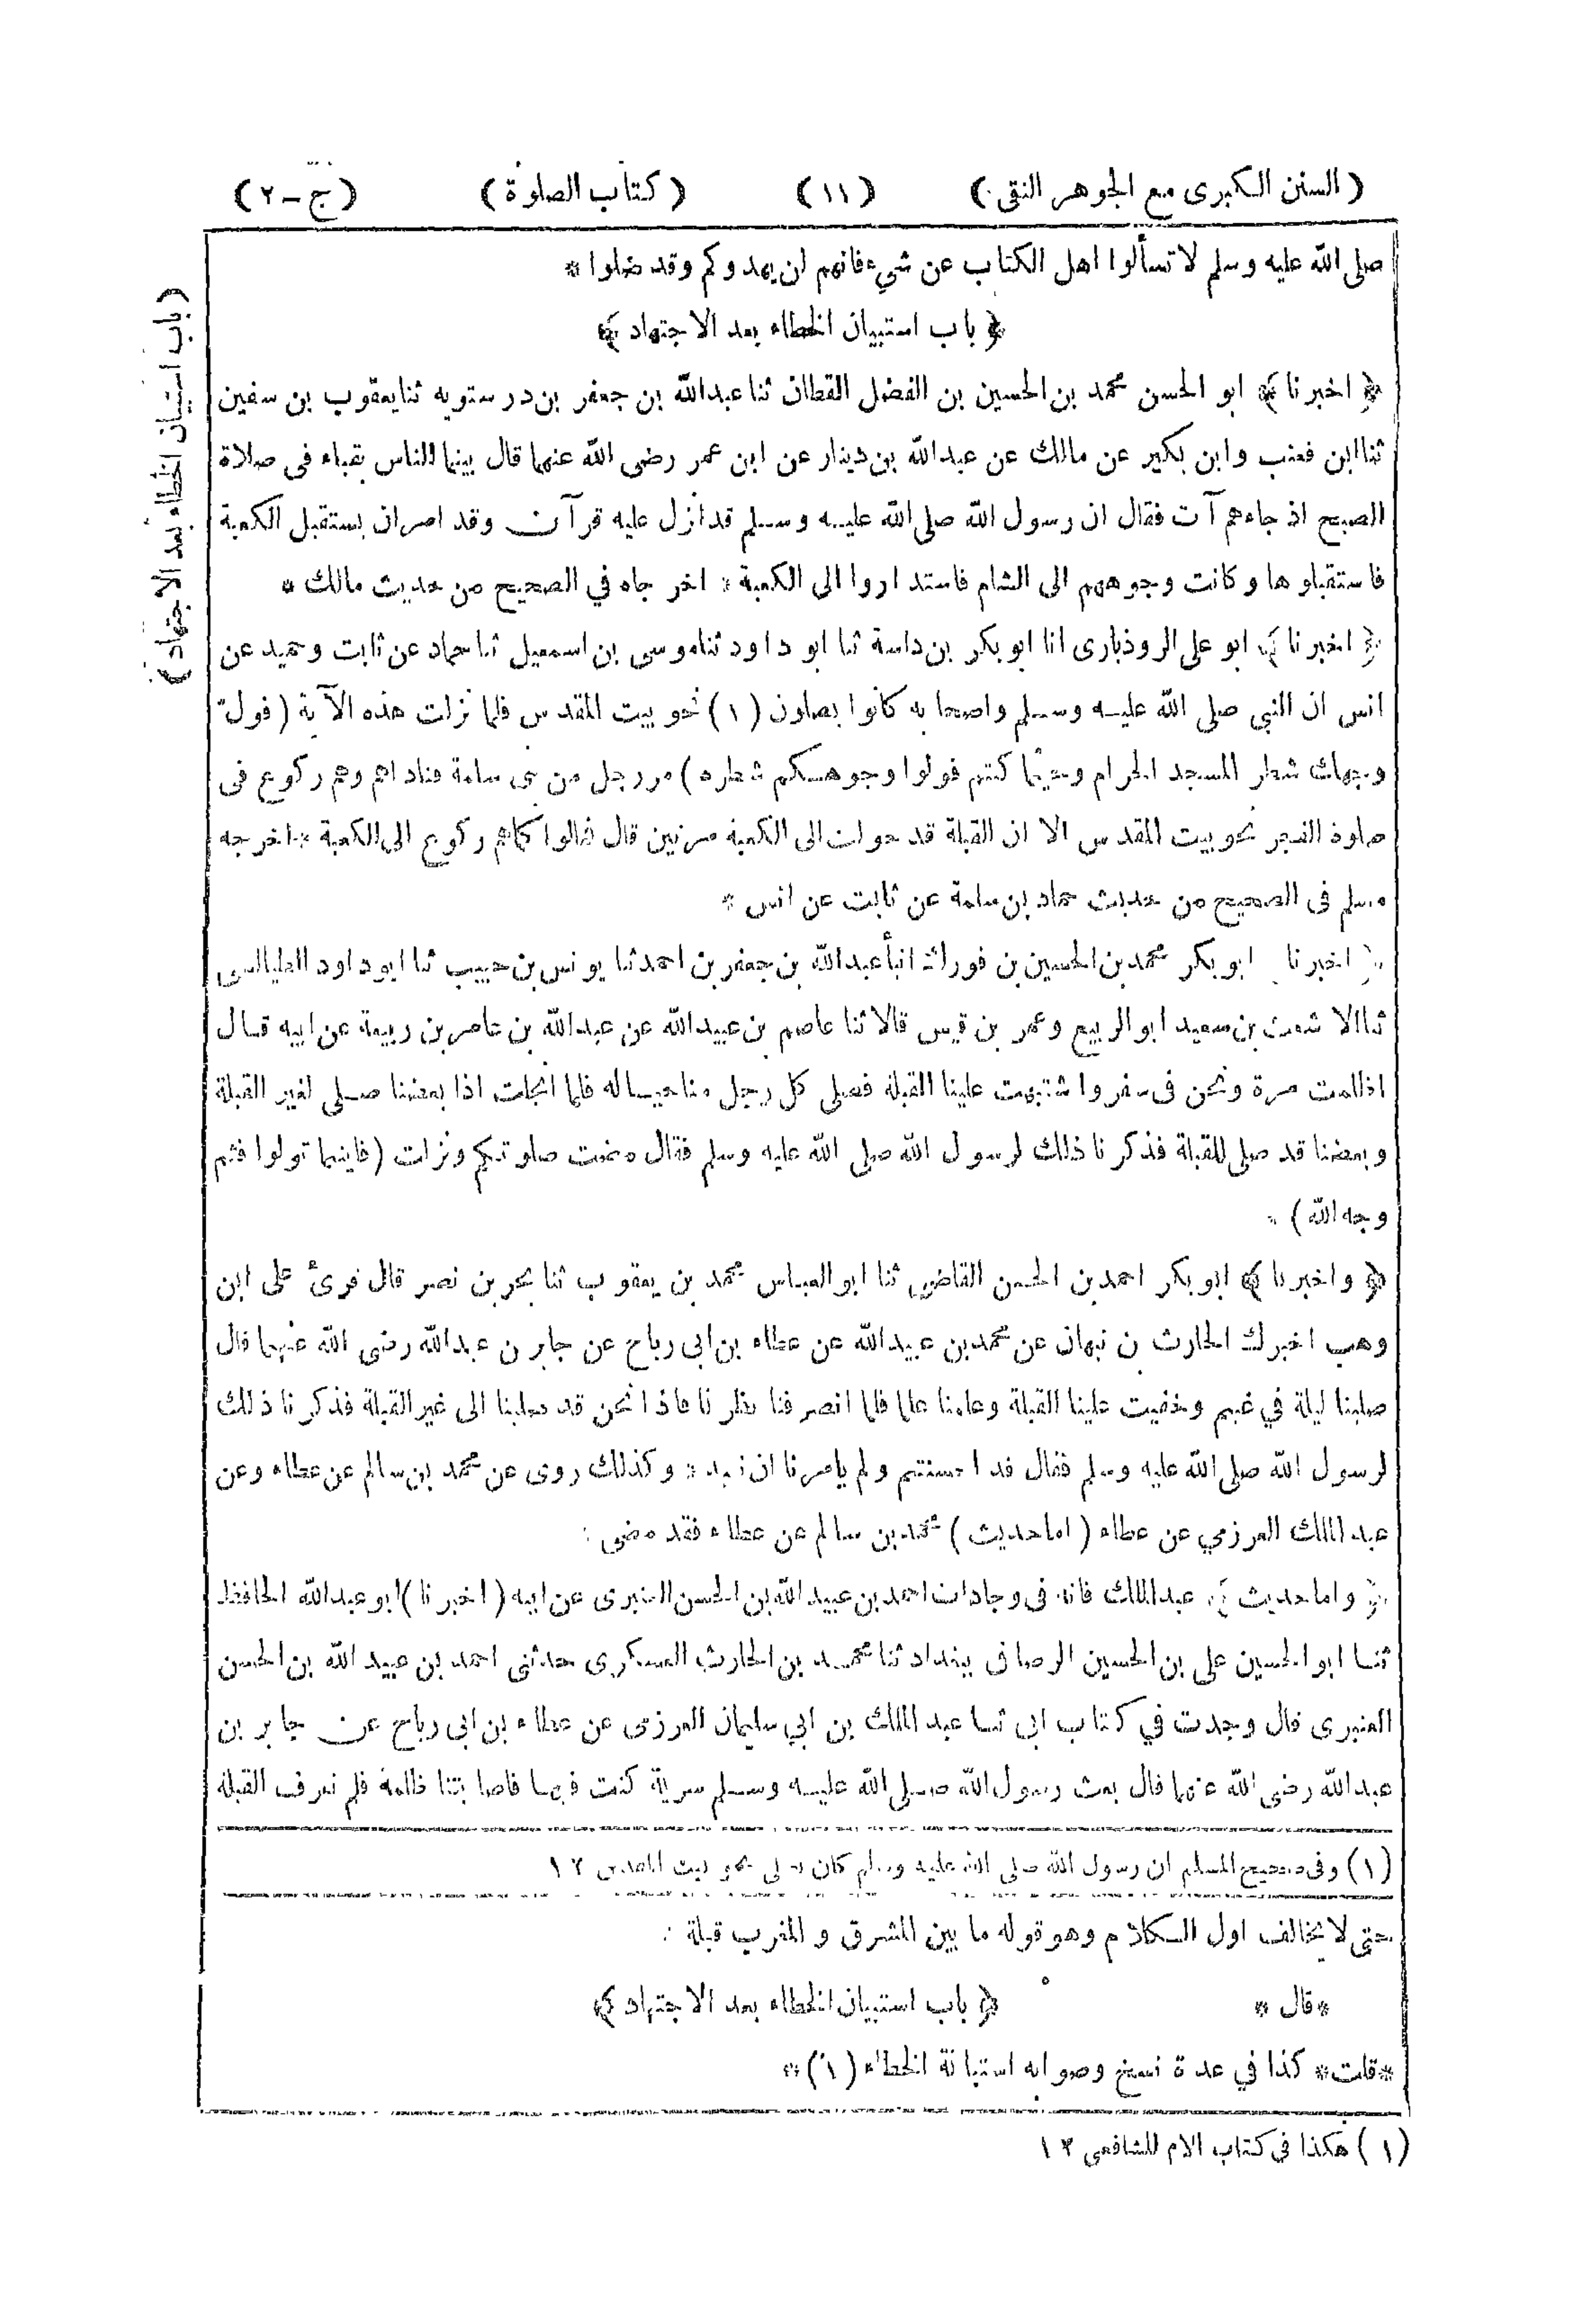 ( السنن الكبرى مع الجوهر النقى ) ( ١١ ) ( كتاب الصلوة ) ( ج - ٢ )
صلى الله عليه وسلم لا تسألوا اهل الكتاب عن شيء فانهم لن يهدوكم وقد ضلوا *
﴿ باب استبيان الخطاء بعد الاجتهاد ﴾
﴿ اخبرنا ﴾ ابو الحسن محمد بن الحسين بن الفضل القطان ثنا عبدالله بن جعفر بن درستويه ثنا يعقوب بن سفين
ثنا ابن قعنب وابن بكير عن مالك عن عبدالله بن دينار عن ابن عمر رضى الله عنهما قال بينما الناس بقباء فى صلاة
الصبح اذ جاءهم آت فقال ان رسول الله صلى الله عليه وسلم قد انزل عليه قرآن وقد امران يستقبل الكعبة
فاستقبلوها وكانت وجوههم الى الشام فاستداروا الى الكعبة * اخرجاه في الصحيح من حديث مالك *
﴿ اخبرنا ﴾ ابو على الروذبارى انا ابو بكر بن داسة ثنا ابو داود ثنا موسى بن اسمعيل ثنا حماد عن ثابت وحميد عن
انس ان النبي صلى الله عليه وسلم واصحابه كانوا يصلون ( ١ ) نحو بيت المقدس فلما نزلت هذه الآية ( فول
وجهك شطر المسجد الحرام وحيثما كنتم فولوا وجوهكم شطره ) مر رجل من بنى سلمة فناداهم وهم ركوع فى
صلوة الفجر نحو بيت المقدس الا ان القبلة قد حولت الى الكعبة مرتين قال فمالوا كماهم ركوع الى الكعبة * اخرجه
مسلم فى الصحيح من حديث حماد بن سلمة عن ثابت عن انس *
﴿ اخبرنا ﴾ ابو بكر محمد بن الحسين بن فورك انبأ عبدالله بن جعفر بن احمد ثنا يونس بن حبيب ثنا ابو داود الطيالسى
ثنا الاشعث بن سعيد ابو الربيع وعمر بن قيس قالا ثنا عاصم بن عبيدالله عن عبدالله بن عامر بن ربيعة عن ابيه قال
اظلمت مرة ونحن فى سفر واشتبهت علينا القبلة فصلى كل رجل منا حياله فلما انجلت اذا بعضنا صلى لغير القبلة
وبعضنا قد صلى للقبلة فذكرنا ذلك لرسول الله صلى الله عليه وسلم فقال مضت صلوتكم ونزلت ( فاينما تولوا فثم
وجه الله ) *
﴿ واخبرنا ﴾ ابو بكر احمد بن الحسن القاضى ثنا ابو العباس محمد بن يعقوب ثنا بحر بن نصر قال قرئ على ابن
وهب اخبرك الحارث بن نبهان عن محمد بن عبيدالله عن عطاء بن ابى رباح عن جابر بن عبدالله رضى الله عنهما قال
صلينا ليلة في غيم وخفيت علينا القبلة وعلمنا علما فلما انصرفنا نظرنا فاذا نحن قد صلينا الى غير القبلة فذكرنا ذلك
لرسول الله صلى الله عليه وسلم فقال قد احسنتم ولم يامرنا ان نعيد * وكذلك روى عن محمد بن سالم عن عطاء وعن
عبد الملك العرزمي عن عطاء ( اما حديث ) محمد بن سالم عن عطاء فقد مضى *
﴿ واما حديث ﴾ عبدالملك فانه فى وجادات احمد بن عبيد الله بن الحسن العنبرى عن ابيه ( اخبرنا ) ابو عبدالله الحافظ
ثنا ابو الحسين على بن الحسين الرصافى ببغداد ثنا محمد بن الحارث العسكرى حدثنى احمد بن عبيد الله بن الحسن
العنبرى قال وجدت في كتاب ابى ثنا عبد الملك بن ابي سليمان العرزمى عن عطاء بن ابى رباح عن جابر بن
عبدالله رضى الله عنهما قال بعث رسول الله صلى الله عليه وسلم سرية كنت فيها فاصابتنا ظلمة فلم نعرف القبلة
( ١ ) وفى صحيح المسلم ان رسول الله صلى الله عليه وسلم كان يصلى نحو بيت المقدس ١٢
حتى لا يخالف اول الكلام وهو قوله ما بين المشرق و المغرب قبلة *
* قال * ﴿ باب استبيان الخطاء بعد الاجتهاد ﴾
* قلت * كذا في عدة نسخ وصوابه استبانة الخطاء ( ١ ) *
( ١ ) هكذا في كتاب الام للشافعى ١٢
( باب استبيان الخطاء بعد الاجتهاد )